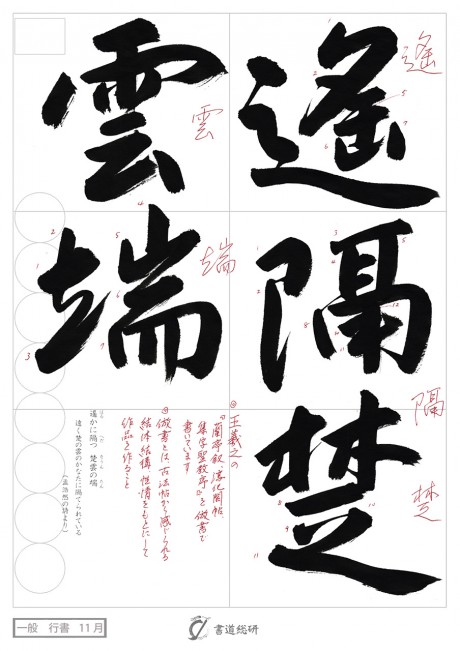 遙隔楚
雲端
遙
隔
楚
雲
端
◎王羲之の
『蘭亭叙、淳化閣帖、
集字聖教序』を倣書で
書いています
◎倣書とは、古法帖から感じられる
結体結構、性情をもとにして
作品を作ること
遥かに隔つ 楚雲の端
遠く楚の雲のかなたに隔てられている
(孟浩然の詩より)
一般 行書 11月
書道総研